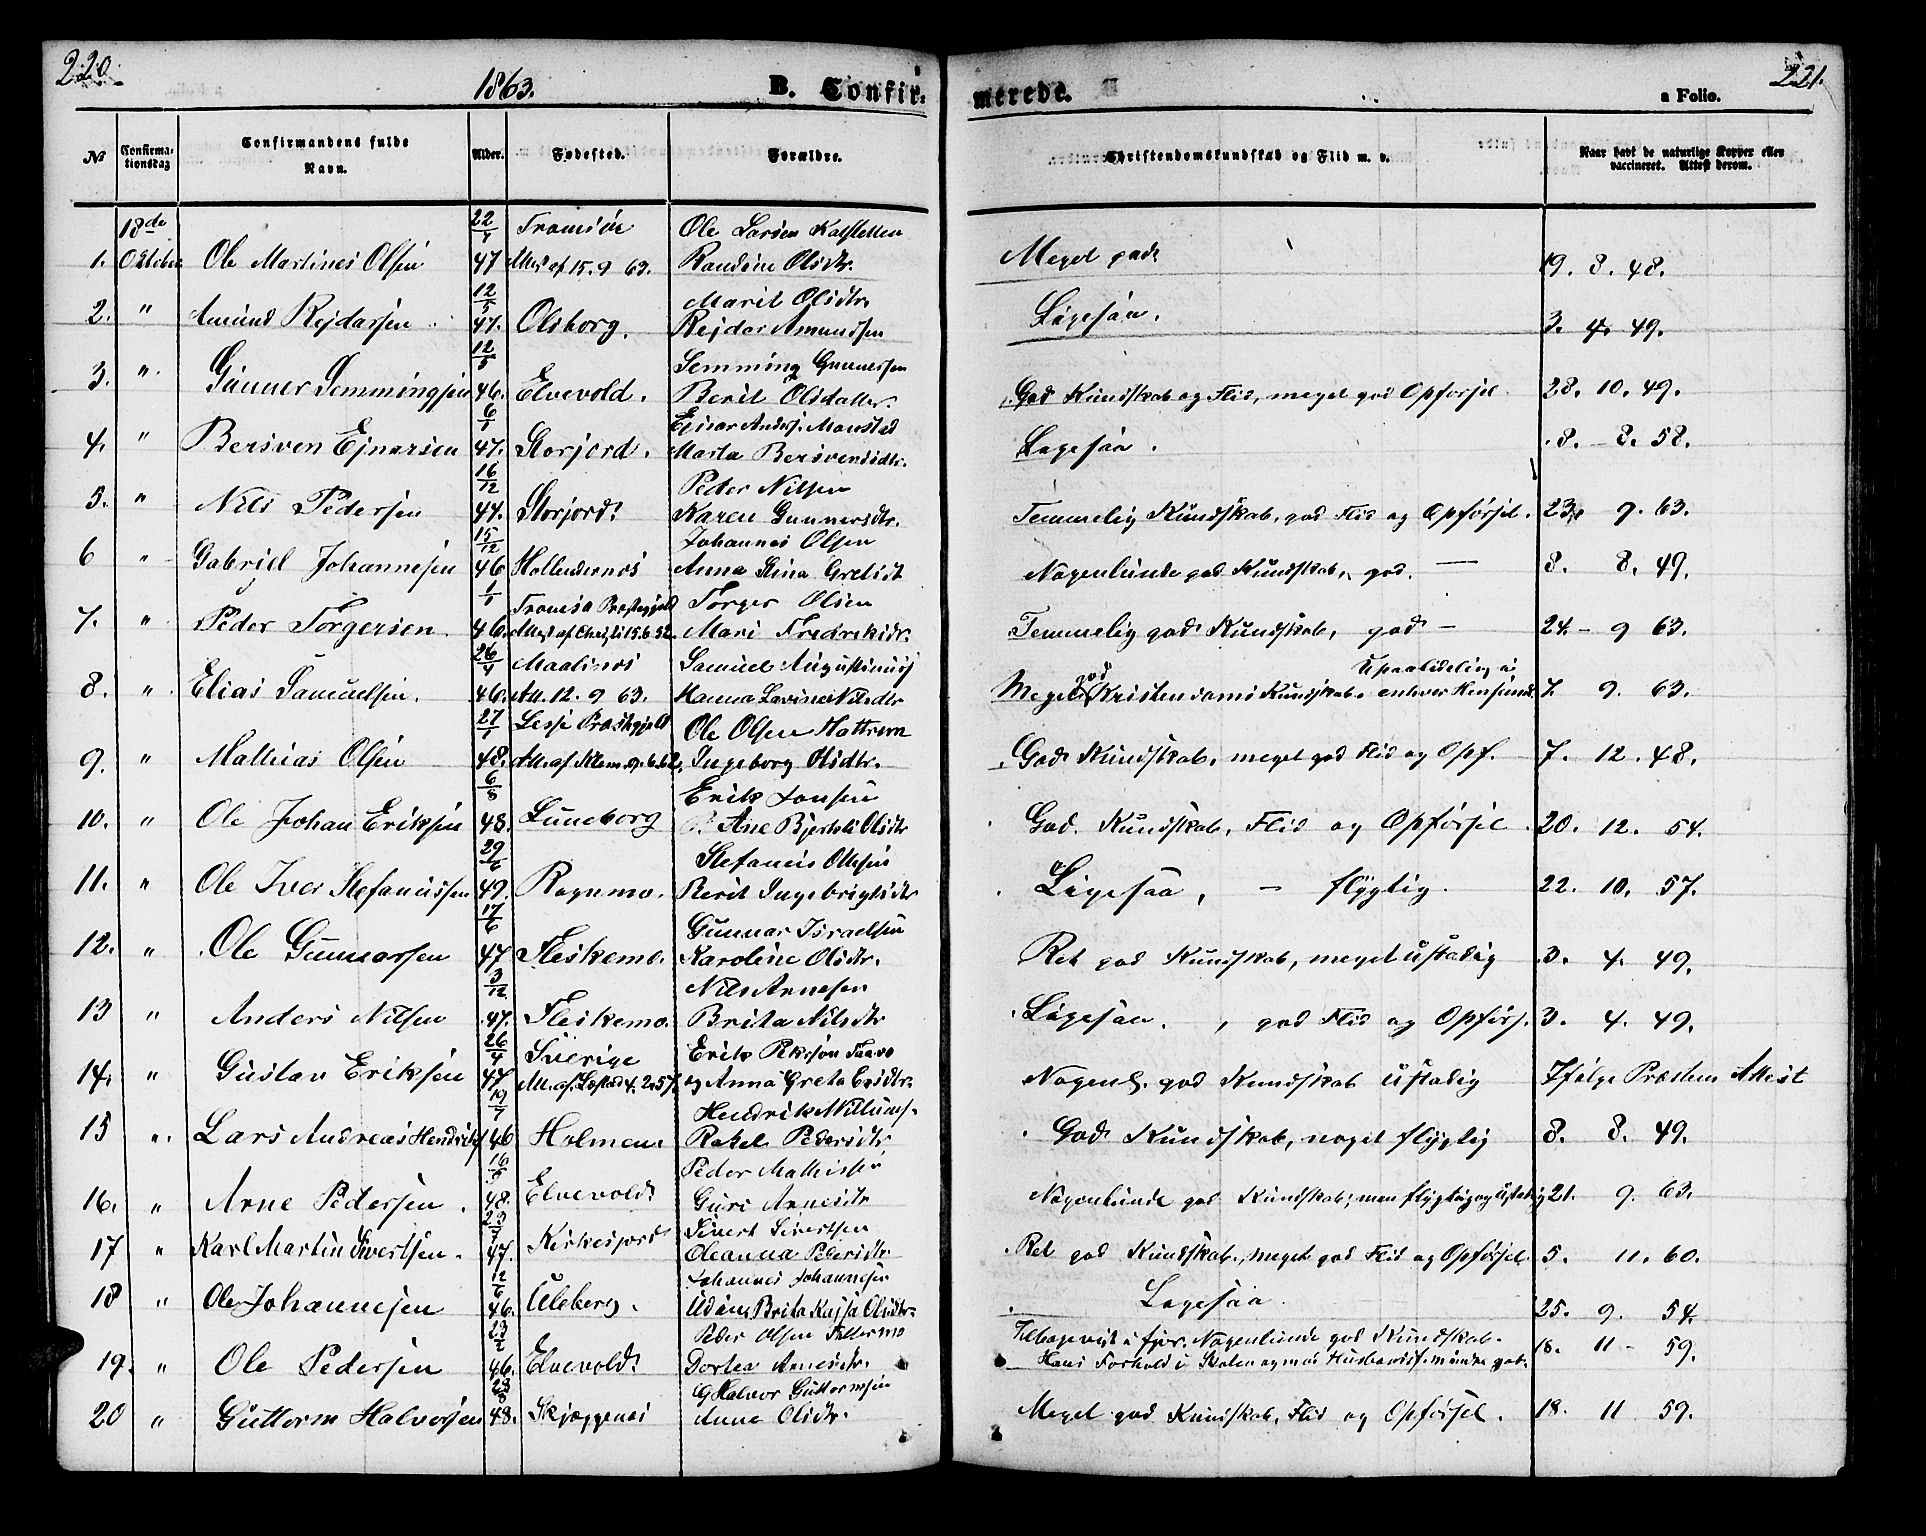 220.
1863.
B. Confir-
merede.
221.
a Folio.
№
Confirma-
tionsdag
Confirmandens fulde
Navn.
Alder.
Fødested.
Forældre.
Christendomskundskab og Flid m. v.
Naar havt de naturlige Kopper eller
vaccineret. Attest derom.
18de 22/4 Tromsöe Ole Larsen
1. Oktober Ole Martines Olsen 47 Att. af 15. 9 63. Randine Olsdtr. Meget god 19. 8. 48.
12/5 Marit Olsdtr
2. " Amund Rejdarsen 47. Olsborg. Rejdar Amundsen Ligesaa. 3. 4. 49.
12/5 Semming Gunnersen
3. " Gunner Semmingsen 46. Elvevold. Berit Olsdatter. God Kundskab og Flid, meget god Opførsel. 28. 10. 49.
6/1 Ejnar Anders. Monstad
4. " Bersven Ejnarsen 47. Storjord. Marta Bersvensdtr. Ligesaa. 8. 8. 58.
16/12 Peder Nilsen
5. " Nils Pedersen 44. Storjord. Karen Gunnersdtr. Temmelig Kundskab, god Flid og Opførsel. 23. 9. 63.
15/12 Johannes Olsen
6 " Gabriel Johannesen 46 Hollendernes Anna Stina Gretsdt Nogenlunde god Kundskab, god. — 8. 8. 49.
1/1 Tromsø Præstegjeld Torger Olsen
7. " Peder Torgersen 46. 15. 6. 52. Mari Fredriksdtr. Temmelig god Kundskab, god — 24. 9 63.
26/4 Maalsnes Samuel Augustinuss
8. " Elias Samuelsen. 46. Att. 12. 9 63. Hanna Lovina Nilsdtr Meget god Kristendoms Kundskab. Upaaklagelig i enhver Henseende. 7. 9. 63.
27/1 Lesje Præstegjeld Ole Olsen Hattrem
9. " Mathias Olsen 48. Att. af 9. 6. 62. Ingeborg Olsdtr. God Kundskab, meget god Flid og Opf. 7. 12. 48.
6/8 Erik Jonsen
10. " Ole Johan Eriksen 48. Luneborg Ane Bjertele Olsdtr God Kundskab, Flid og Opførsel 20. 12. 54.
29/6 Stefanus Olsen
11. " Ole Iver Stefanussen 49. Rognmo. Berit Ingebrigtsdtr Ligesaa, — flygtig. 22. 10. 57.
17/6 Gunnar Israelsen
12. " Ole Gunnarsen 47 Fleskemo. Karoline Olsdtr. Ret god Kundskab, meget ustadig 3. 4. 49.
3/12 Nils Arnesen
13 " Anders Nilsen 47. Fleskemo. Brita Nilsdtr Ligesaa, god Flid og Opførs. 3. 4. 49.
26/4 Sverige Erik
14. " Gustav Eriksen 47 Att. af 4. 2. 57. og Anna Greta Ersdtr. Nogenl. god Kundskab ustadig Ifølge Præstens Attest
19/7 Hendrik Nillums.
15 " Lars Andreas Hendriks 46 Holmen. Rakel Pedersdtr. God Kundskab, noget flygtig 8. 8. 49.
16/5 Peder Mathissen
16. " Arne Pedersen. 48. Elvevold Guri Arnesdtr Nogenlunde god Kundskab; men flygtig og ustadig 21. 9. 63.
23/7 Sivert Sivertsen
17 " Karl Martin Sivertsen. 47. Kirkesjord Oleanna Pedersdtr Ret god Kundskab, meget god Flid og Opførsel. 5. 11. 60.
12/6 Johannes Johannesen
18 " Ole Johannesen 46. Uleberg. Brita Kajsa Olsdtr. Ligesaa. 25. 9. 54.
23/2 Peder Olsen
19. " Ole Pedersen 46. Elvevold Dortea Arnesdtr. Tilbagevist i fjor. Nogenlunde god Kundskab. 18. 11 — 59.
Hans Forhold i Skolen og mod Husbondsf. mindre godt.
23/8 Halvor Guttormsen
20 " Guttorm Halvorsen 48. Skjæggenes Anne Olsdtr. Meget god Kundskab, Flid og Opførsel. 18. 11 59.